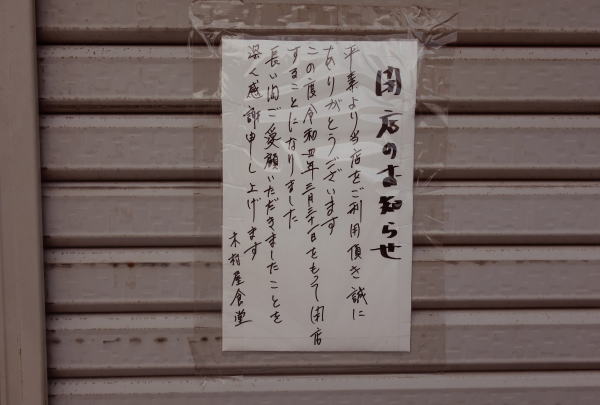 閉店のお知らせ
平素より当店をご利用頂き誠に
ありがとうございます
この度令和四年三月三十一日をもって閉店
することになりました
長い間ご愛顧いただきましたことを
深く感謝申し上げます
木村屋食堂